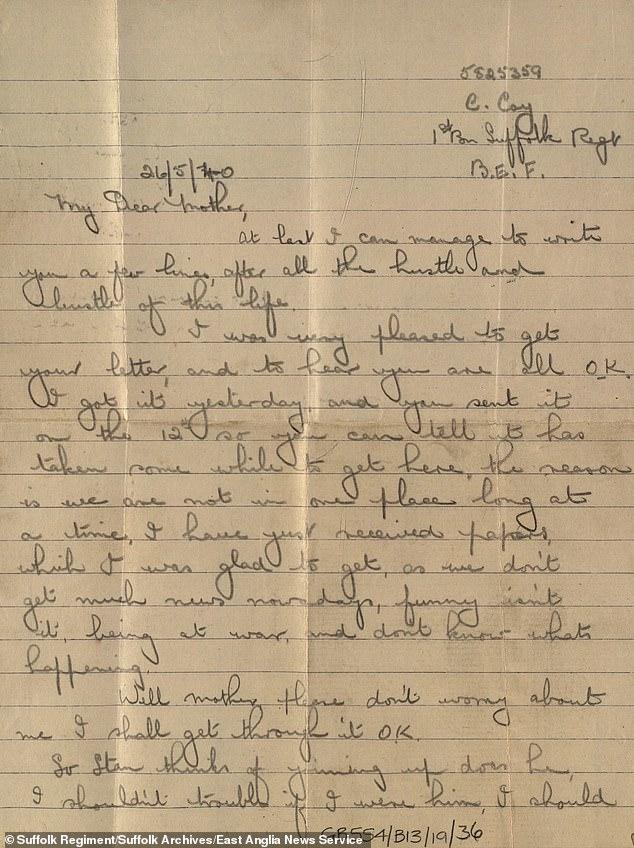 5825359
C. Coy
1st Bn Suffolk Regt
B.E.F.
26/5/40
My Dear Mother,
At last I can manage to write
you a few lines, after all the hustle and
bustle of this life.
I was very pleased to get
your letter, and to hear you are all O.K.
I got it yesterday, and you sent it
on the 12th so you can tell it has
taken some while to get here, the reason
is we are not in one place long at
a time, I have just received papers,
which I was glad to get, as we don't
get much news nowadays, funny isn't
it, being at war, and dont know whats
happening.
Well mother, please don't worry about
me I shall get through it O.K.
So Stan thinks of joining up does he,
I shouldn't trouble if I were him, I should
GB554/B13/19/36
©Suffolk Regiment/Suffolk Archives/East Anglia News Service